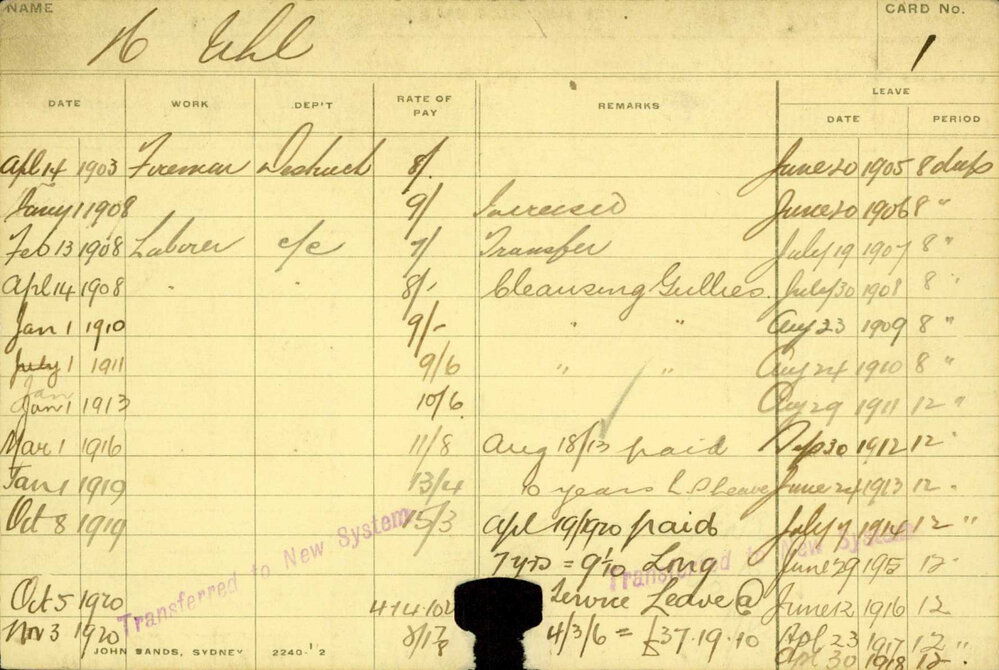 NAME CARD No.
H Uhl 1
LEAVE
DATE WORK DEP'T RATE OF PAY REMARKS DATE PERIOD
Apl 14 1903 Foreman Destruct 8/. June 20 1905 8 days
Jany 1 1908 9/ Increased June 20 1906 8 "
Feb 13 1908 Laborer c/c 7/ Transfer July 19 1907 8 "
Apl 14 1908 " " 8/- Cleansing Gullies. July 30 1908 8 "
Jan 1 1910 9/- " " Aug 23 1909 8 "
July 1 1911 9/6 " " Aug 24 1910 8 "
Jan
Jan 1 1913 10/6 Aug 29 1911 12 "
Mar 1 1916 11/8 Aug 18/13 paid Sep 30 1912 12 "
Jan 1 1919 13/4 10 years L S leave June 24 1913 12 "
Oct 8 1919 15/3 Apl 19/1920 paid July 7 1914 12 "
7 yrs = 9 1/10 Long June 29 1915 12 "
Transferred to New System
Transferred to New System
Oct 5 1920 Service Leave @ June 12 1916 12
Nov 3 1920 4/3/6 = £37.19.10 Apl 23 1917 12 "
Apr 30 1918 12 "
JOHN SANDS, SYDNEY 2240-1/2